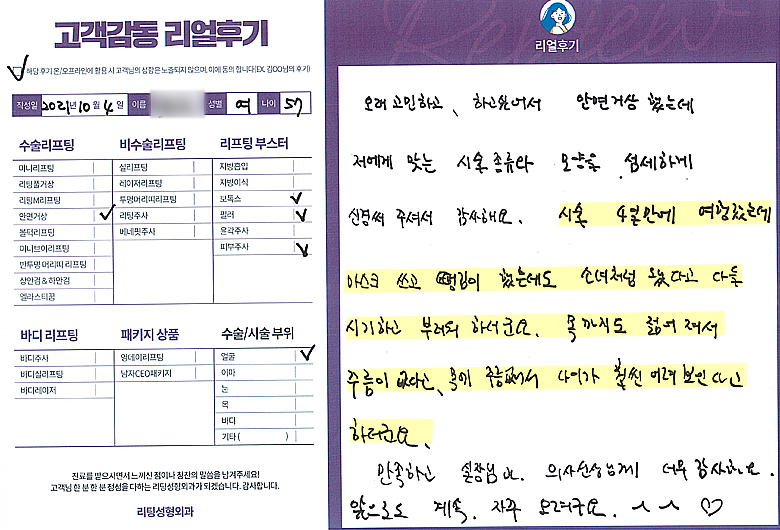 고객감동 리얼후기
해당 후기 온/오프라인에 활용 시 고객님의 성함은 노출되지 않으며, 이에 동의 합니다(EX. 김OO님의 후기)
작성일 2021년 10월 4일 이름 성별 여 나이 57
수술리프팅
미니리프팅
리팅풀거상
리팅M리프팅
안면거상
볼턱리프팅
미니브이리프팅
반투명 머리띠 리프팅
상안검 & 하안검
엘라스티꿈
비수술리프팅
실리프팅
레이저리프팅
투명머리띠리프팅
리팅주사
베네핏주사
리프팅 부스터
지방흡입
지방이식
보톡스
필러
윤곽주사
피부주사
바디 리프팅
바디주사
바디실리프팅
바디레이저
패키지 상품
영데이리프팅
남자CEO패키지
수술/시술 부위
얼굴
이마
눈
목
바디
기타 ( )
진료를 받으시면서 느끼신 점이나 칭찬의 말씀을 남겨주세요!
고객님 한 분 한 분 정성을 다하는 리팅성형외과가 되겠습니다. 감사합니다.
리팅성형외과
Review
리얼후기
오래 고민하고, 하고싶어서 안면거상 했는데
저에게 맞는 시술 종류와 모양을 섬세하게
신경써 주셔서 감사해요. 시술 4일만에 여행갔는데
마스크 쓰고 땡김이 했는데도 소녀처럼 왔다고 다들
시기하고 부러워 하더군요. 목까지도 젊어져서
주름이 없다고, 목에 주름없어서 나이가 훨씬 어려보인다고
하더군요.
만족하고 실장님과. 의사선생님께 너무 감사하고요.
앞으로도 계속. 자주 오려구요. ^ ^ ♡